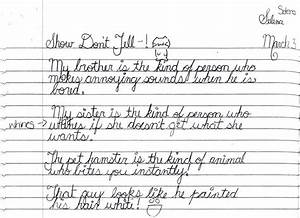 Salena
Salena
Show Don't Tell -
March 3
My brother is the kind of person who
makes annoying sounds when he is
bord.
My sister is the kind of person who
whines → whines if she doesn't get what she
wants.
The pet hamster is the kind of animal
who bites you instantly!
That guy looks like he painted
his hair white!